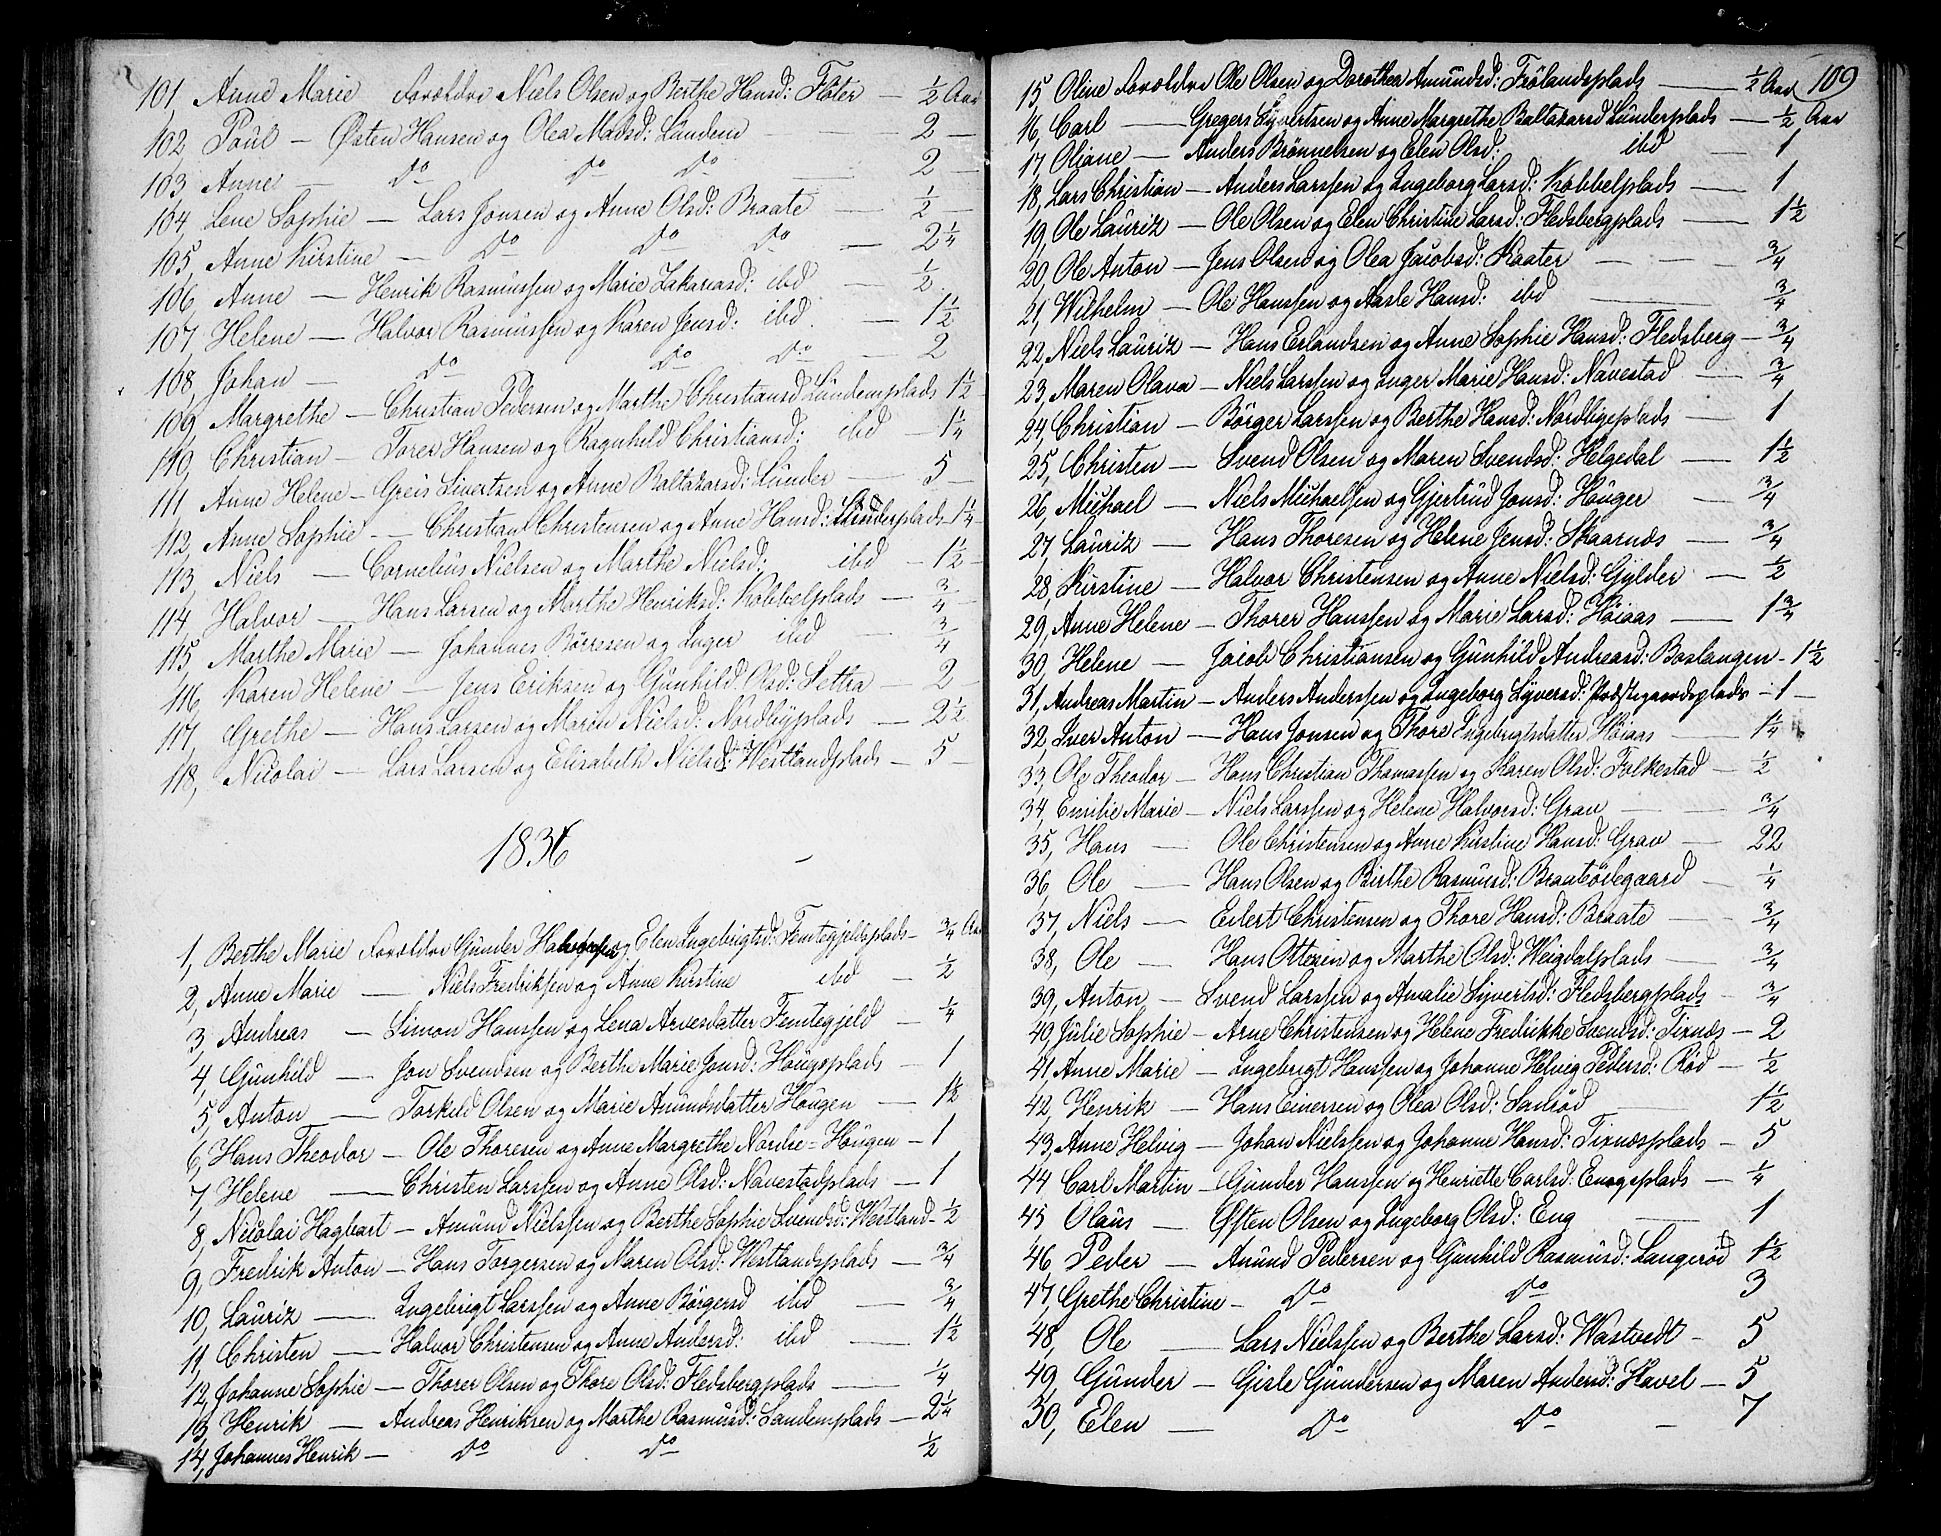 101, Anne Marie Forældre Niels Olsen og Berthe Hansd: Flöter — ½ Aar
102, Paul — Østen Hansen og Olea Madsd: Sundem — 2 —
103, Anne — Do Do Do — 2 —
104, Lene Sophie — Lars Jonsen og Anne Olsd: Braate — ½ —
105, Anne Kirstine — Do Do Do — 2¼
106, Anne — Henrik Rasmussen og Marie Zakariasd: ibd — ½
107, Helene — Halvor Rasmussen og Karen Jensd: ibd — 1½
108, Johan — Do Do Do — 2
109, Margrethe — Christian Pedersen og Marthe Christiansd Sundemplads 1½ —
110, Christian — Tores Hansen og Ragnhild Christiansd: ibd — 1¼
111 Anne Helene — Greis Sivertsen og Anne Baltazarsd: Lunder — 5 —
112, Anne Sophie — Christian Christensen og Anne Hansd: Lunderplads 1¼ —
113, Niels — Cornelius Nielsen og Marthe Nielsd: ibd — 1½ —
114 Halvor — Hans Larsen og Marthe Henriksd: Kobbelplads — ¾ —
115, Marthe Marie — Johannes Börresen og Inger ibd — ¾
116, Karen Helene — Jens Eriksen og Gunhild Olsd: Lettra — 2 —
117, Grethe — Hans Larsen og Maren Nielsd: Nordbyplads — 2½
118, Nicolai — Lars Larsen og Elisabeth Nielsd: Westlandplads — 5 —
1836
1, Berthe Marie Forældre Gunder Halvorsen og Elen Ingebrigtsd: Femtegjeldsplads — ¾ Aar
2, Anne Marie — Niels Fredriksen og Anne Kirstine ibd — ½
3, Andreas — Simon Hanssen og Lena Arvesdatter Femtegjeld — ¼
4, Gunhild — Jon Svendsen og Berthe Marie Jonsd: Hougsplads — 1
5, Anton — Torkild Olsen og Marie Amundsdatter Hougen — 1½
6, Hans Theodor — Ole Thoresen og Anne Margrethe Nordre-Hougen — 1
7, Helene — Christen Larssen og Anne Olsd: Navestadplads — 1
8, Nicolai Hagbart — Amund Nielssen og Berthe Sophie Svendsd: Westland — ½
9, Fredrik Anton — Hans Torgersen og Maren Olsd: Westlandsplads — ¾
10, Lauriz — Ingebrigt Larssen og Anne Börgersd ibd — ¾
11, Christen — Halvor Christensen og Anne Andersd: ibd — 1½
12, Johanne Sophie — Thorer Olsen og Thore Olsd: Fledsbergplads — ¼
13, Henrik — Andreas Henriksen og Marthe Rasmusd: Sandemplads — 2¼
14, Johannes Henrik — Do Do ½
109
15, Oline Forældre Ole Olsen og Dorothea Amundsd: Frölandsplads — ½ Aar
16, Carl — Gregers Syvertsen og Anne Margrethe Baltazarsd Lunderplads — ½ Aar
17, Oliane — Anders Brönnelsen og Elen Olsd: ibd — 1
18, Lars Christian — Anders Larssen og Ingeborg Larsd: Kobbelplads — 1
19, Ole Lauriz — Ole Olsen og Elen Christine Larsd: Fledsbergplads — 1½
20, Ole Anton — Jens Olsen og Olea Jacobsd: Kaater — ¾
21, Wilhelm — Ole Hanssen og Aasle Hansd: ibd — ¾
22, Niels Lauriz — Hans Erlandsen og Anne Sophie Hansd: Fledsberg — ¾
23, Maren Olava — Niels Larssen og Inger Marie Hansd: Navestad — ¾
24, Christian — Börger Larssen og Berthe Hansd: Nordbyeplads — 1
25, Christen — Svend Olsen og Maren Svendsd: Helgedal — 1½
26, Michael — Niels Michaelsen og Gjertrud Jonsd: Houger — ¾
27, Lauriz — Hans Thoresen og Helene Jensd: Skaarnæs — ¾
28, Kirstine — Halvor Christensen og Anne Nielsd: Gylder — ½
29, Anne Helene — Thorer Hanssen og Marie Larsd: Höiaas — 1¾
30, Helene — Jacob Christiansen og Gunhild Andreasd: Baslangen — 1½
31, Andreas Martin — Anders Anderssen og Ingeborg Syversd: Præstegaardsplads — 1 —
32, Iver Anton — Hans Jonsen og Thore Ingebrigtsdatter Höiaas — 1¼
33, Ole Theodor — Hans Christian Thomassen og Karen Olsd: Folkestad — ½
34, Emilie Marie — Niels Larssen og Helene Halvorsd: Grav — ¾
35, Hans — Ole Christensen og Anne Kirstine Hansd: Grav — 22
36, Ole — Hans Olsen og Birthe Rasmusd: Brautödegaard — ¼
37, Niels — Eilert Christensen og Thore Hansd: Braate — ¾
38, Ole — Hans Ottersen og Marthe Olsd: Weigdalplads — ¾
39, Anton — Svend Larssen og Amalie Syvertsd: Fledsbergplads — ¾
40, Julie Sophie — Arne Christensen og Helene Fredrikke Svendsd: Tirnæs — 2
41, Anne Marie — Ingebrigt Hanssen og Johanne Helvig Pedersd: Röd — ½
42, Henrik — Hans Einersen og Olea Olsd: Samröd 1½
43, Anne Helvig — Johan Nielssen og Johanne Hansd: Tirnæsplads — 5
44 Carl Martin — Gunder Hanssen og Henriette Carlsd: Engsplads — ¼
45 Olaus — Østen Olsen og Ingeborg Olsd: Eng — 1
46 Peder — Amund Pedersen og Gunhild Rasmusd: Langeröd 1½
47, Grethe Christine — Do Do 3
48, Ole — Lars Nielssen og Berthe Larsd: Wastvedt — 5
49, Gunder — Gisle Gundersen og Maren Andersd: Havel — 5
50, Elen — Do Do — 7